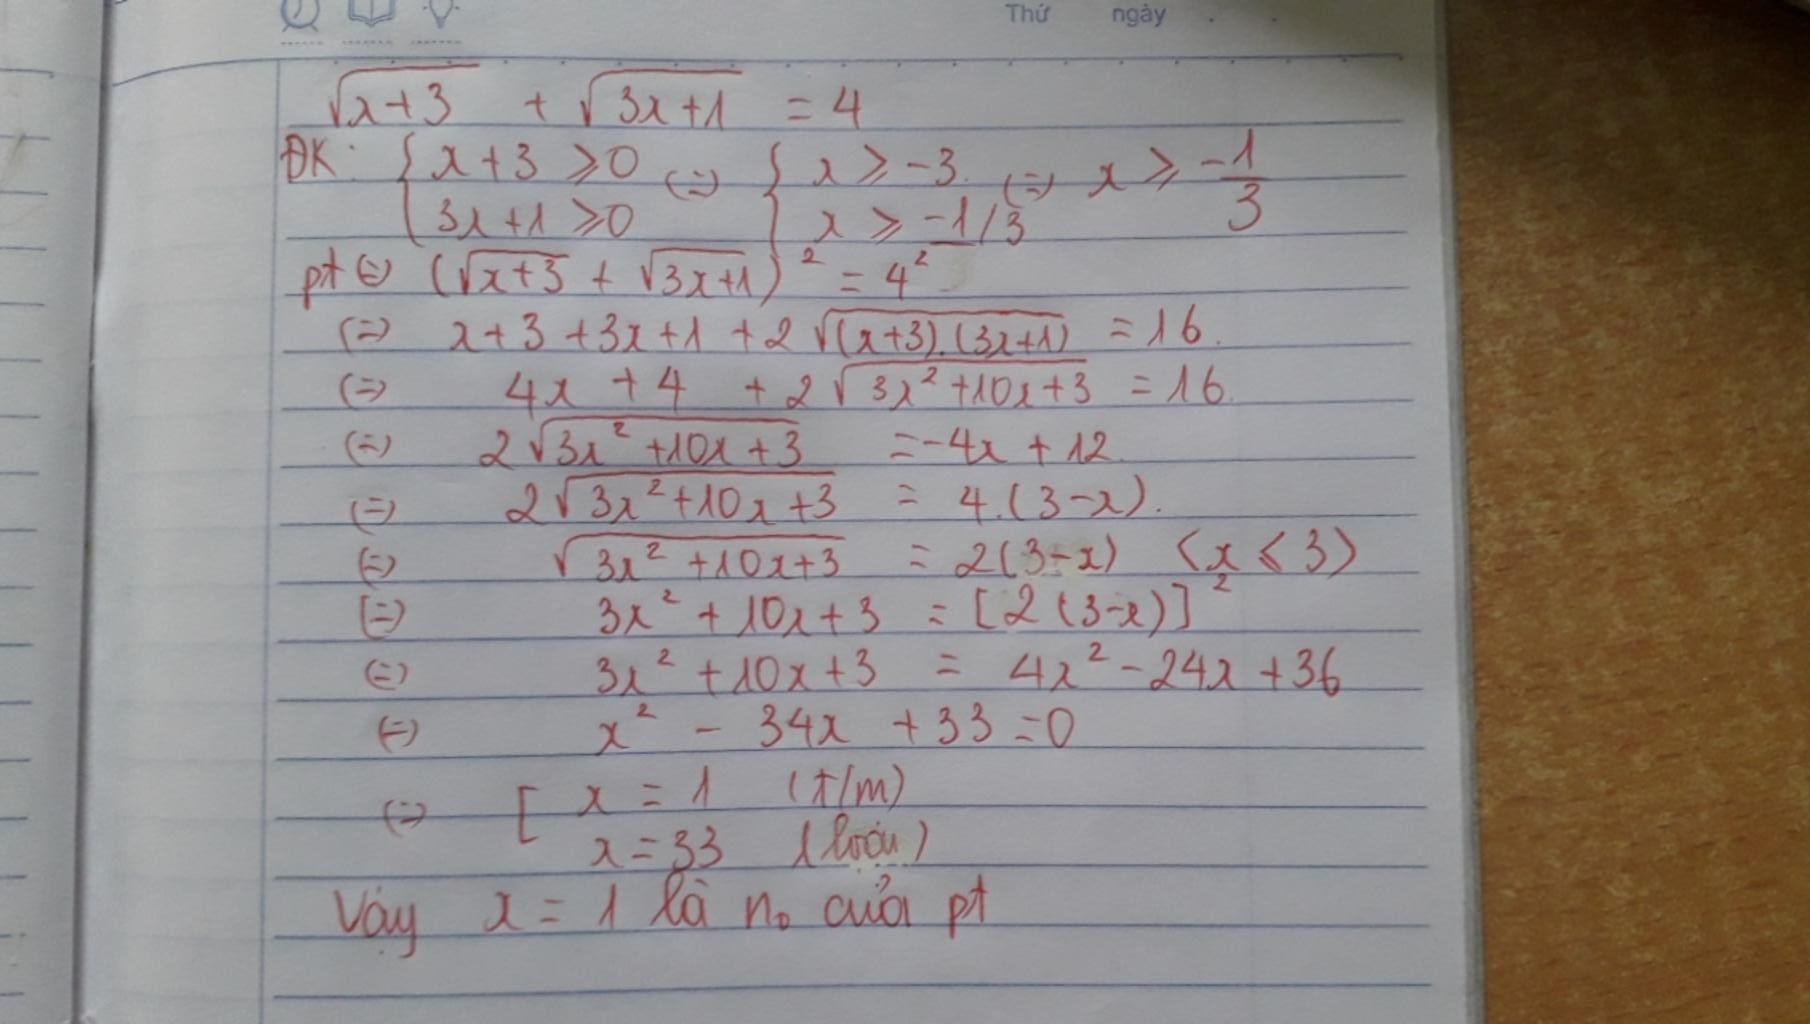 Thứ ngày
√(x+3) + √(3x+1) = 4
ĐK: { x+3 ≥ 0 (=) { x ≥ -3. (=) x ≥ -1/3
3x+1 ≥ 0 x ≥ -1/3
pt (=) (√(x+3) + √(3x+1))² = 4²
(=) x+3 +3x+1 +2√((x+3).(3x+1)) = 16.
(=) 4x + 4 + 2√(3x²+10x+3) = 16.
(=) 2√(3x²+10x+3) = -4x + 12.
(=) 2√(3x²+10x+3) = 4.(3-x).
(=) √(3x²+10x+3) = 2(3-x) (x ≤ 3)
(=) 3x² + 10x+3 = [2(3-x)]²
(=) 3x² +10x+3 = 4x² -24x +36
(=) x² - 34x +33 =0
(=) [ x = 1 (t/m)
x = 33 (loại)
Vậy x = 1 là no của pt